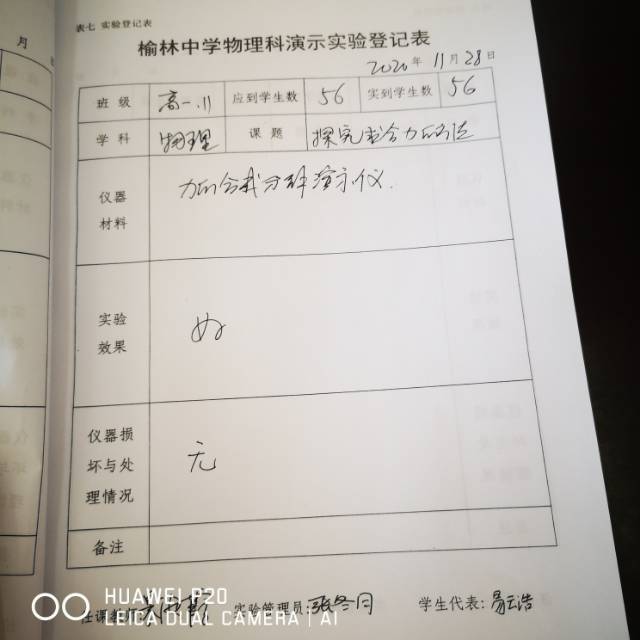 表七 实验登记表
榆林中学物理科演示实验登记表
2020年 11月 28日
班 级 高一.11 应到学生数 56 实到学生数 56
学 科 物理 课 题 探究求合力的方法
仪器材料 力的合成分解演示仪.
实验效果 好
仪器损坏与处理情况 无
备注
任课教师: 实验管理员: 张冬月 学生代表: 易云浩
HUAWEI P20
LEICA DUAL CAMERA | AI
月